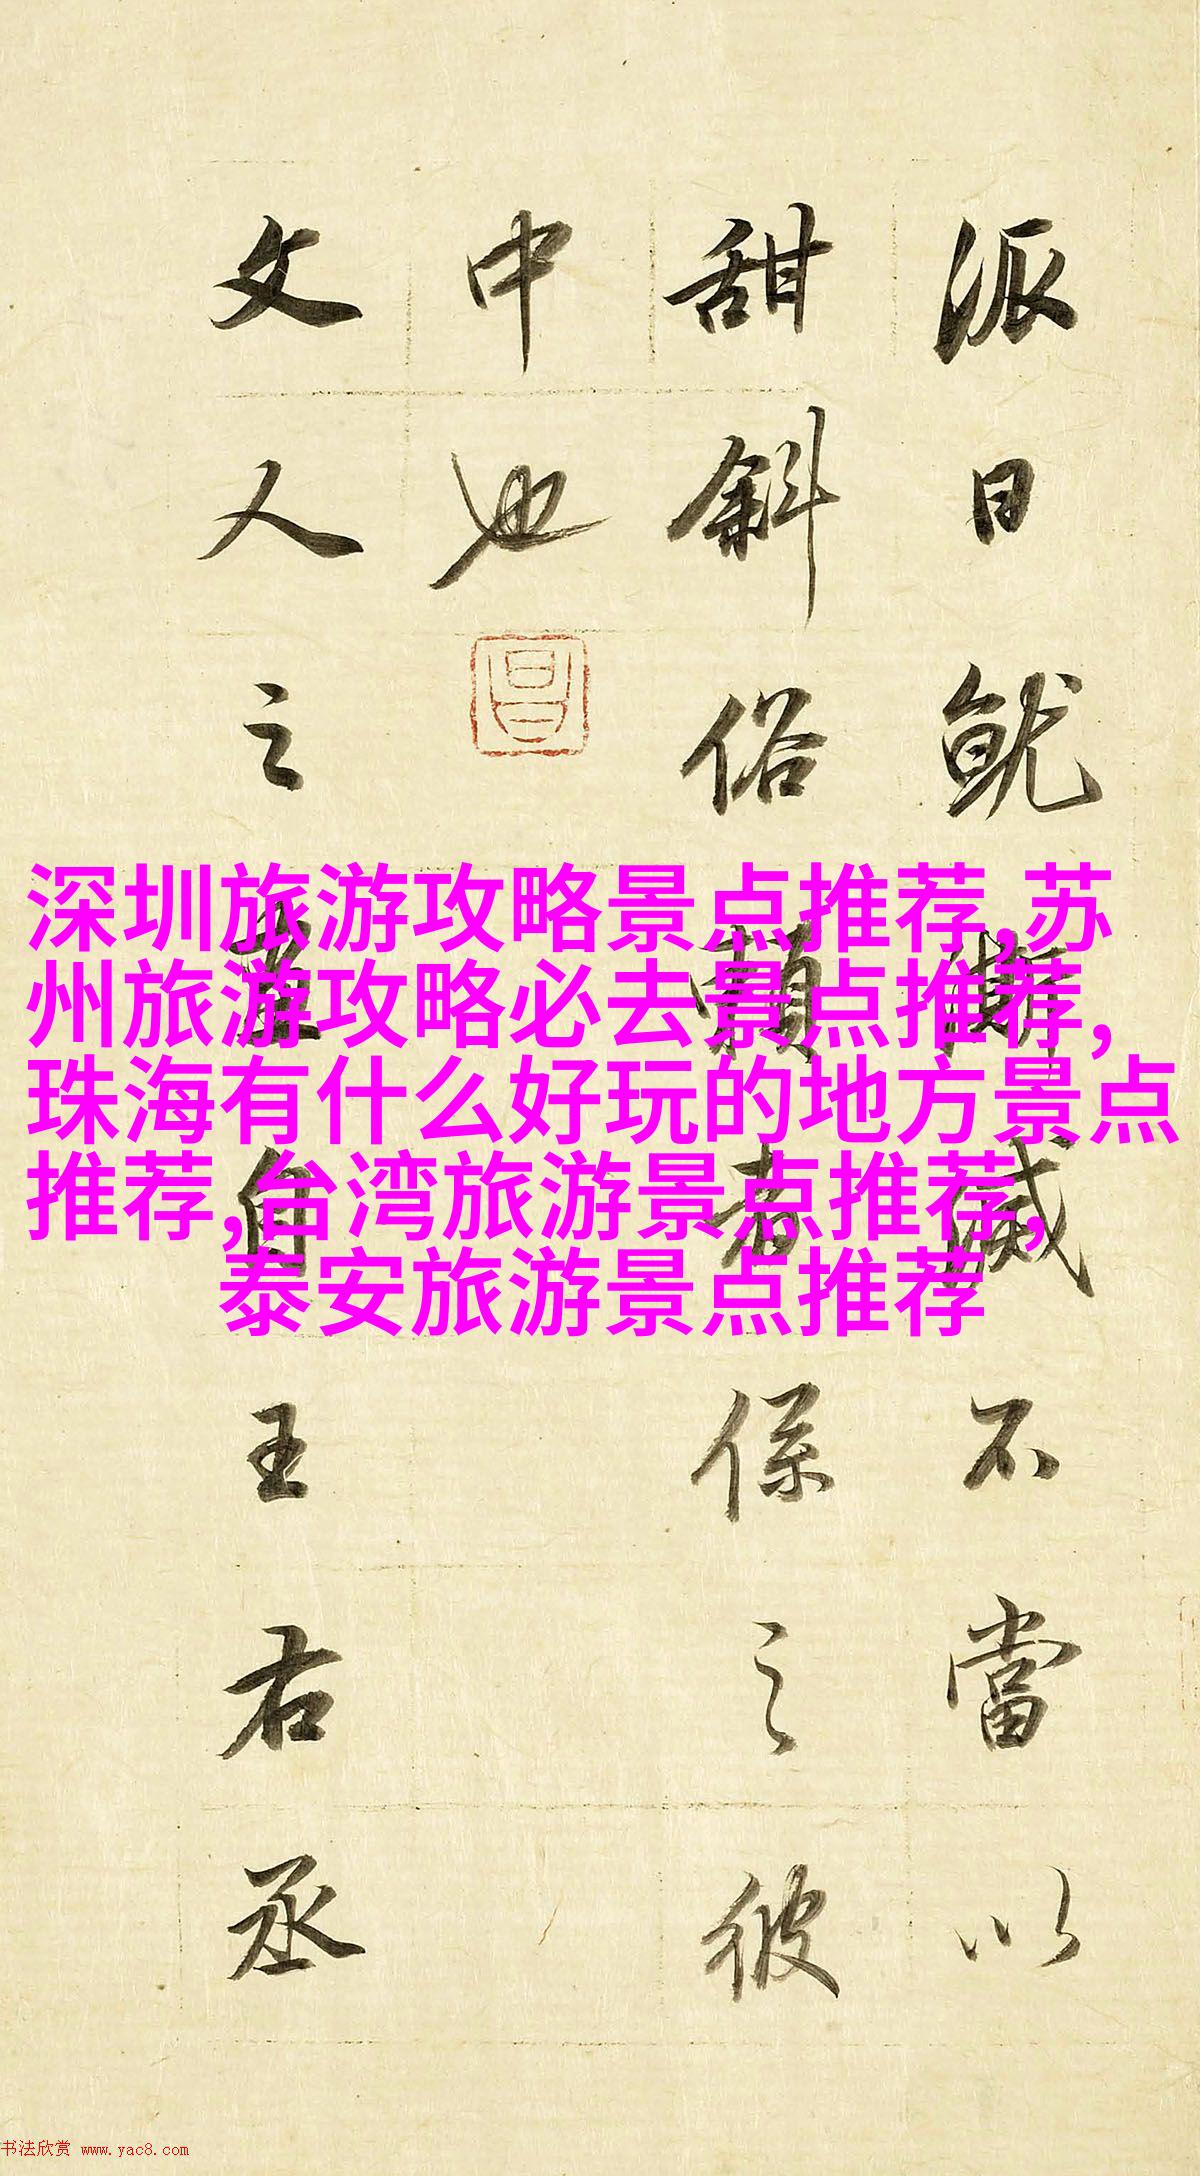 派日就澌滅不當以
甜斜俗賴者係之彼
中也
昌
文人之畫自王右丞
深圳旅游攻略景点推荐,苏
州旅游攻略必去景点推荐,
珠海有什么好玩的地方景点
推荐,台湾旅游景点推荐,
泰安旅游景点推荐
书法欣赏 www.yac8.com